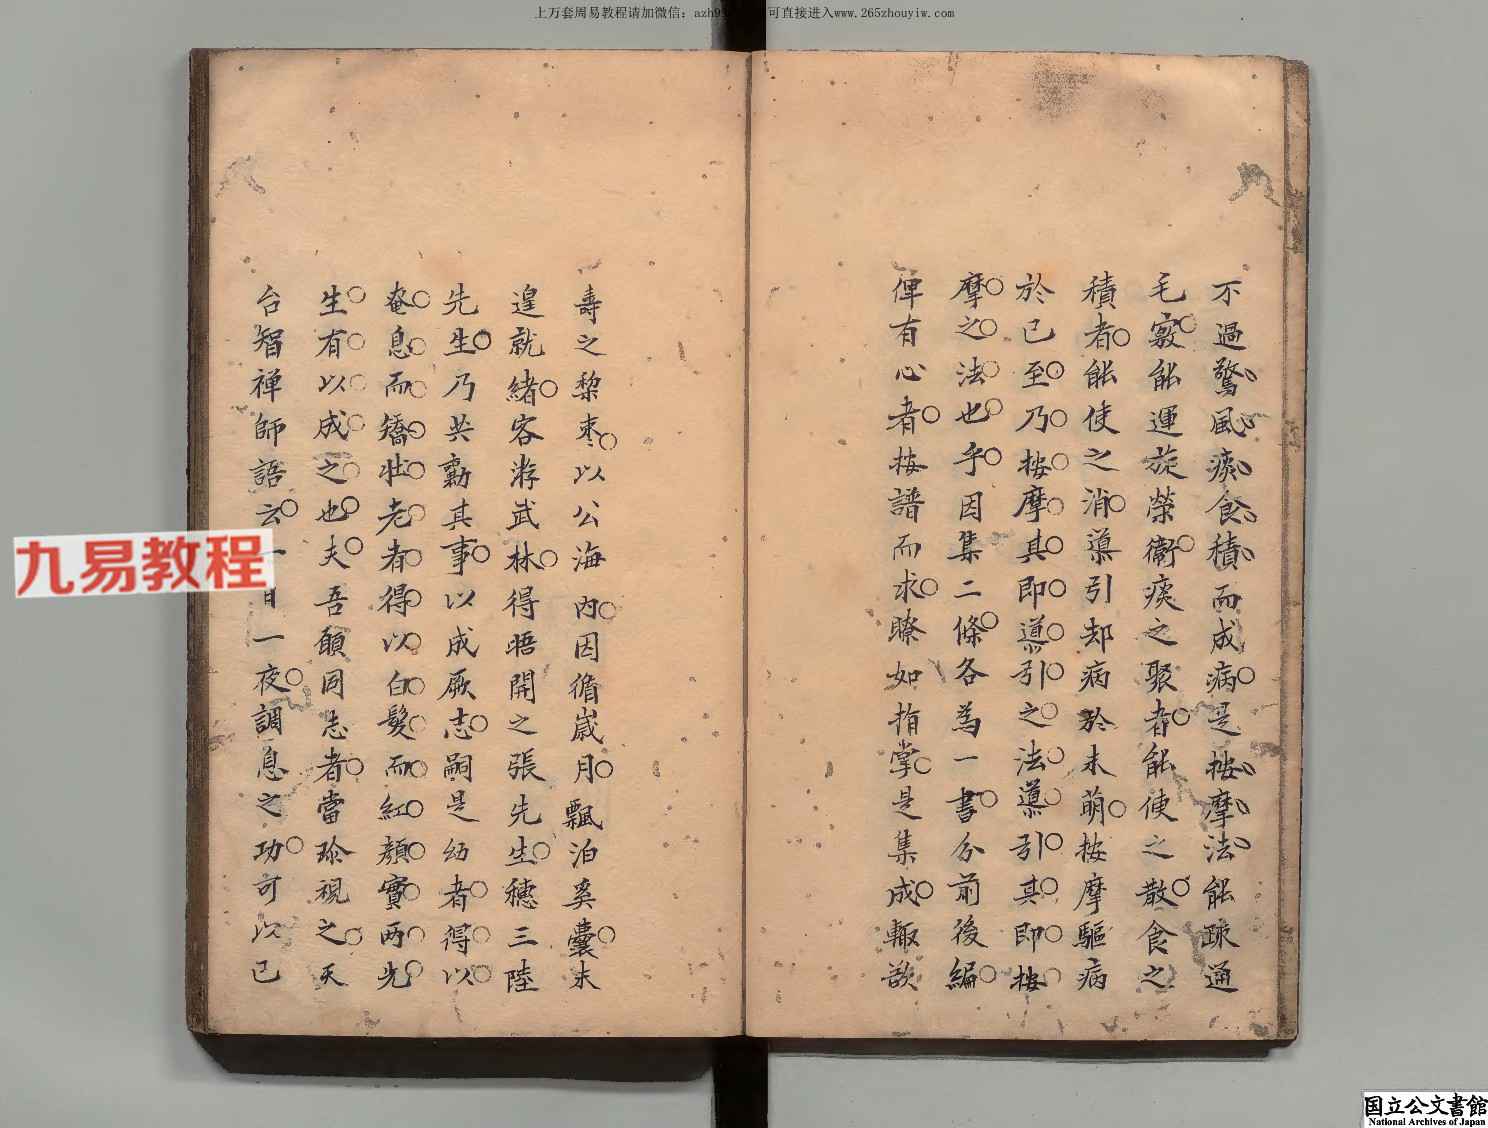 上万套周易教程请加微信：azh9 可直接进入www.265zhouyiw.com
不過驚風痰食積而成病是按摩法能疎通
毛竅能運旋榮衛痰之聚者能使之散食之
積者能使之消導引却病於未萌按摩驅病
於已至乃按摩其即導引之法導引其即按
摩之法也乎因集二條各為一書分前後編
俾有心者按譜而求瞭如指掌是集成輙欲
壽之棃枣以公海內因循歲月飄泊奚囊未
遑就緒客游武林得晤開之張先生穗三陸
先生乃共勷其事以成厥志嗣是幼者得以
奄息而矯壯老者得以白髮而紅顏實两先
生有以成之也夫吾願同志者當珍視之天
台智禅師語云一日一夜調息之功可以已
九易教程
国立公文書館
National Archives of Japan